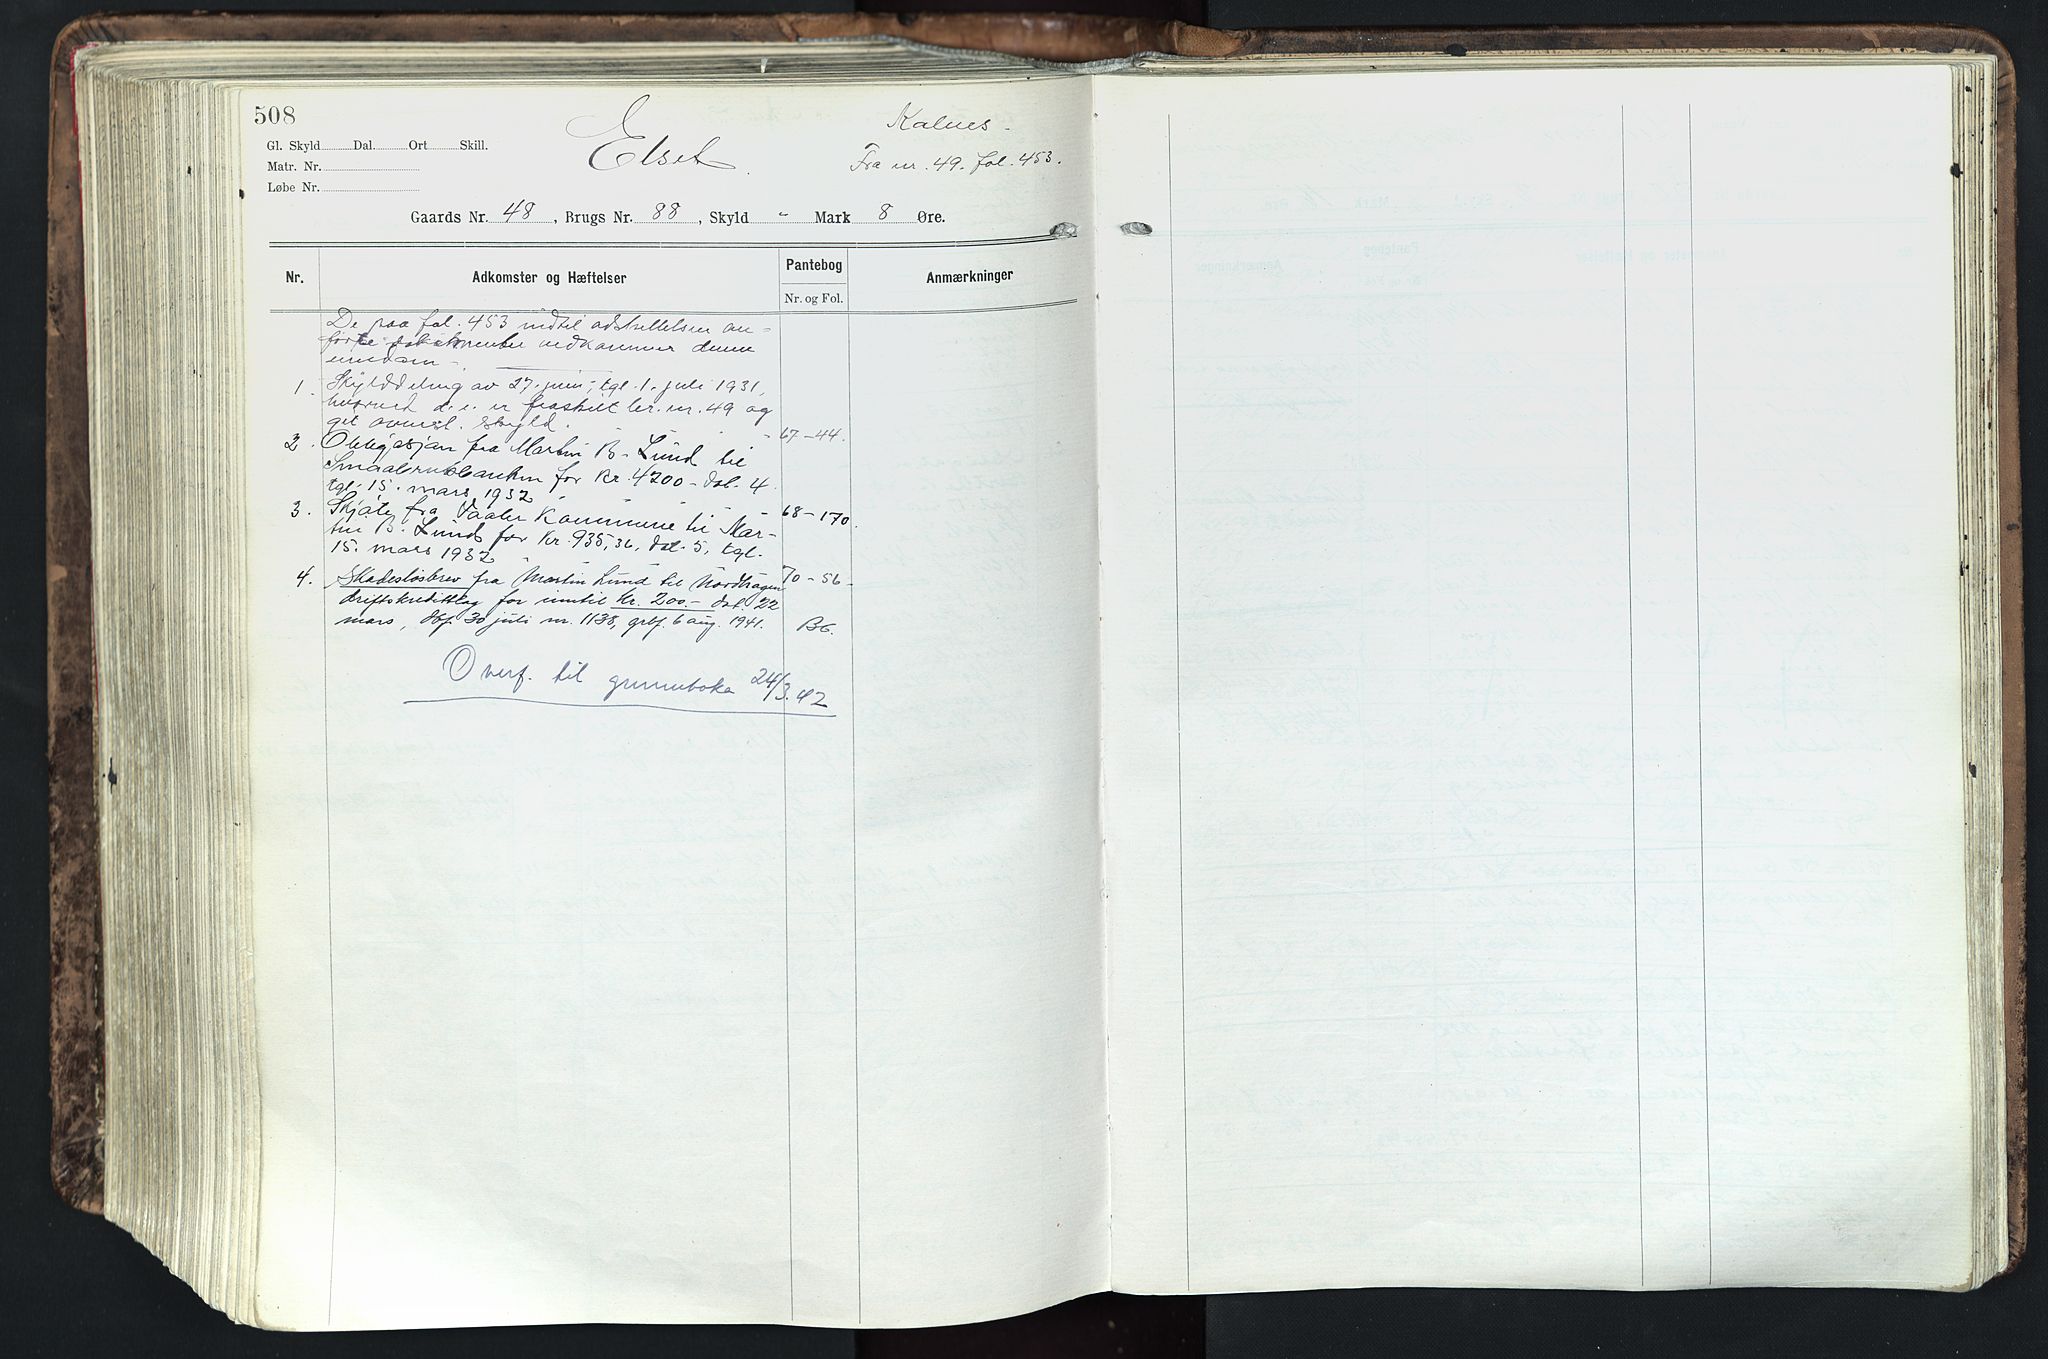 508
Elset
Kalnes -
Gl. Skyld Dal. Ort Skill.
Matr. Nr.
Fra nr. 49. fol. 453.
Løbe Nr.
Gaards Nr. 48, Brugs Nr. 88, Skyld " Mark 8 Øre.
Nr. Adkomster og Hæftelser Pantebog Anmærkninger
Nr. og Fol.
De paa fol. 453 indtil adskillelsen an-
førte dokumenter vedkommer denne
eiendom.
1. Skylddeling av 27. juni, tgl. 1. juli 1931,
hvorved d. e. er fraskilt br. nr. 49 og
git ovenst. skyld. 67-44.
2. Obligasjon fra Martin B. Lund til
Smaabruksbanken for Kr. 4200 - dat. 4.
tgl. 15. mars 1932 " " " 68-170.
3. Skjøte fra Vaaler Kommune til Mar-
tin B. Lund for Kr. 935,36, dat. 5, tgl.
15. mars 1932
4. Skadesløsbrev fra Martin Lund til Nordhagen 70-56-
driftskredittlag for inntil Kr. 200.- dat. 22
mars, dbf. 30 juli nr. 1138, grbf. 6 aug. 1941. B6.
Overf. til grunnboka 24/3.42